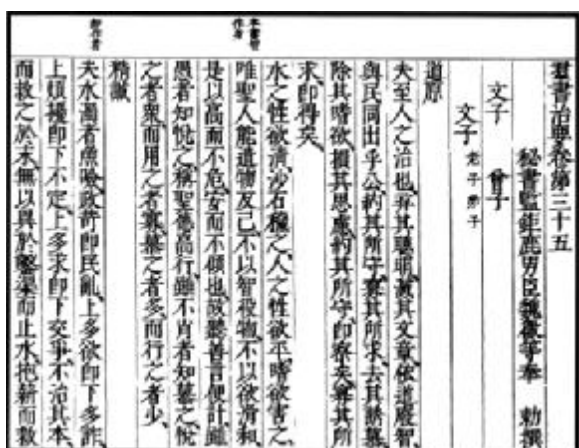 羣書治要卷第三十五
秘書監鉅鹿男臣魏徵等奉 勅撰
文子 曾子
文子 老子弟子
道原
夫至人之治也弃其聰明滅其文章依道廢智
與民同出乎公約其所守寡其所求去其誘慕
除其嗜欲損其思慮約其所守即察矣寡其所
求即得矣
水之性欲清沙石穢之人之性欲平嗜欲害之
唯聖人能遺物反己不以智役物不以欲滑和
是以高而不危安而不傾也故聽善言便計雖
愚者知悅之稱聖德高行雖不肖者知慕之悅
之者衆而用之者寡慕之者多而行之者少
精誠
夫水濁者魚噞政苛即民亂上多欲即下多詐
上煩擾即下不定上多求即下交爭不治其本
而救之於末無以異於鑿渠而止水抱薪而救
本書智
作身